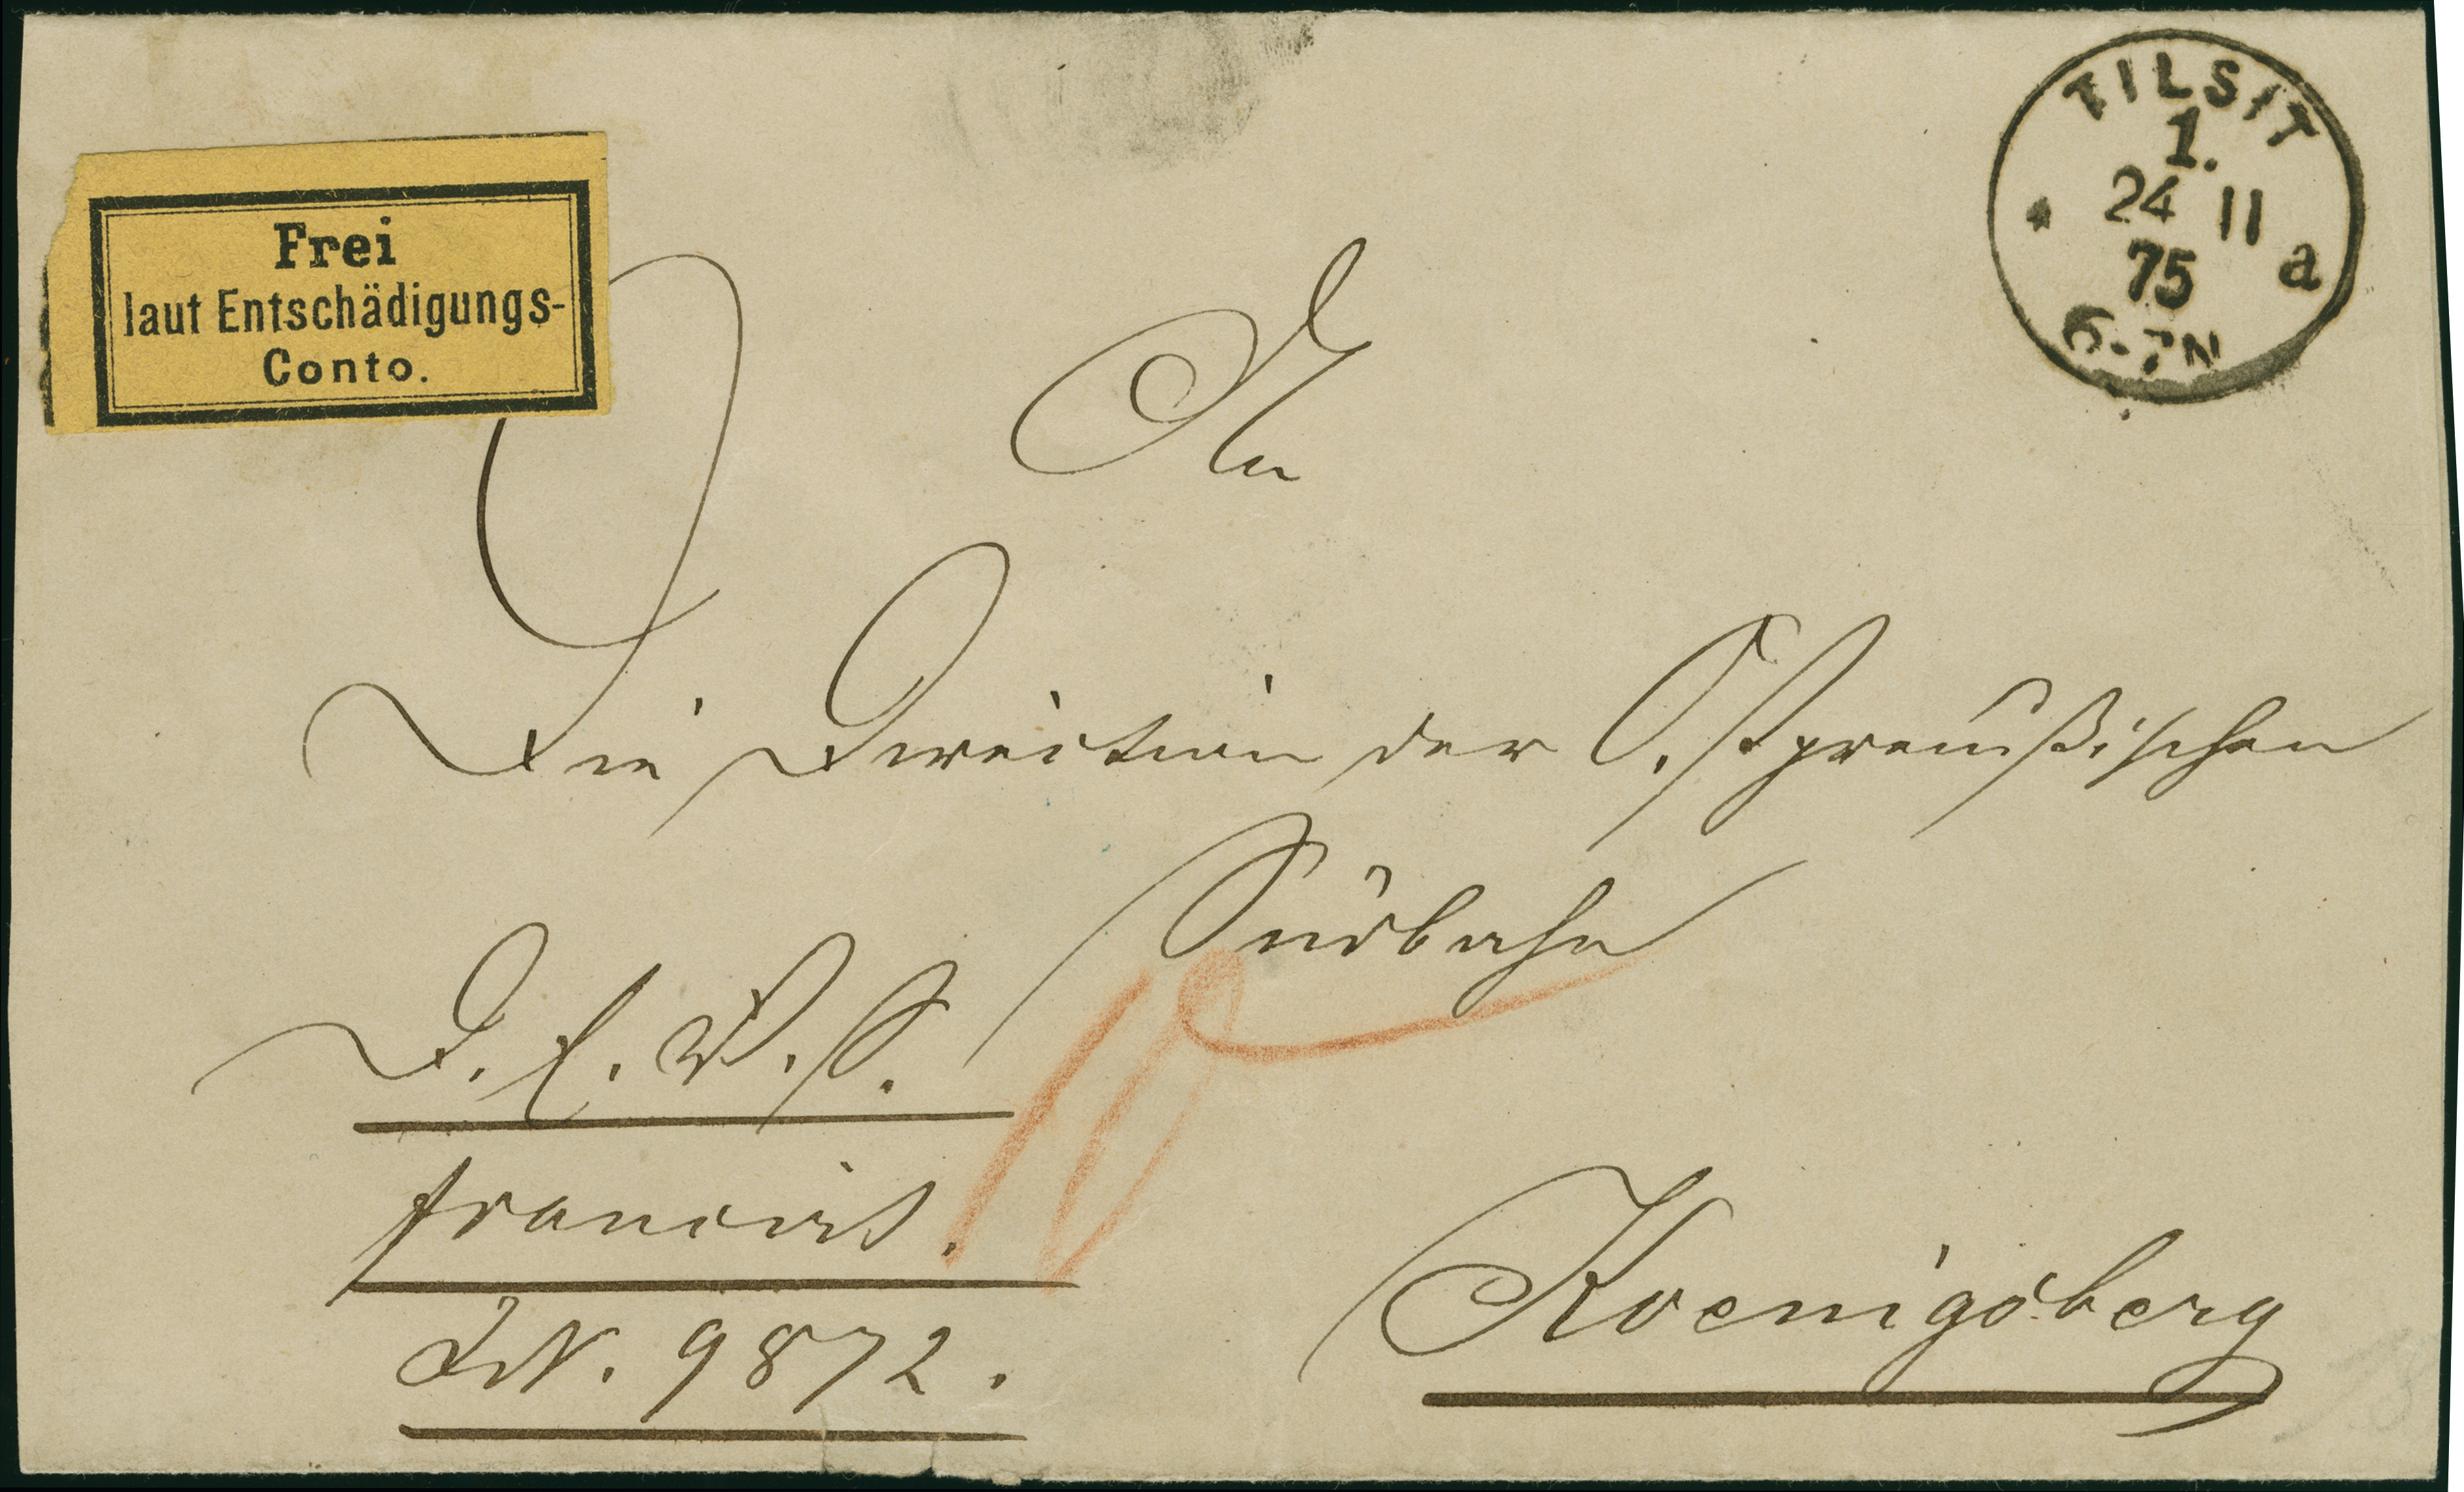 Frei
laut Entschädigungs-
Conto.
TILSIT
1.
24 11
75
a
6-7N
An
Die Direction der Ostpreußischen
Südbahn
D. E. V. S.
francirt.
JN. 9872.
10
Koenigsberg